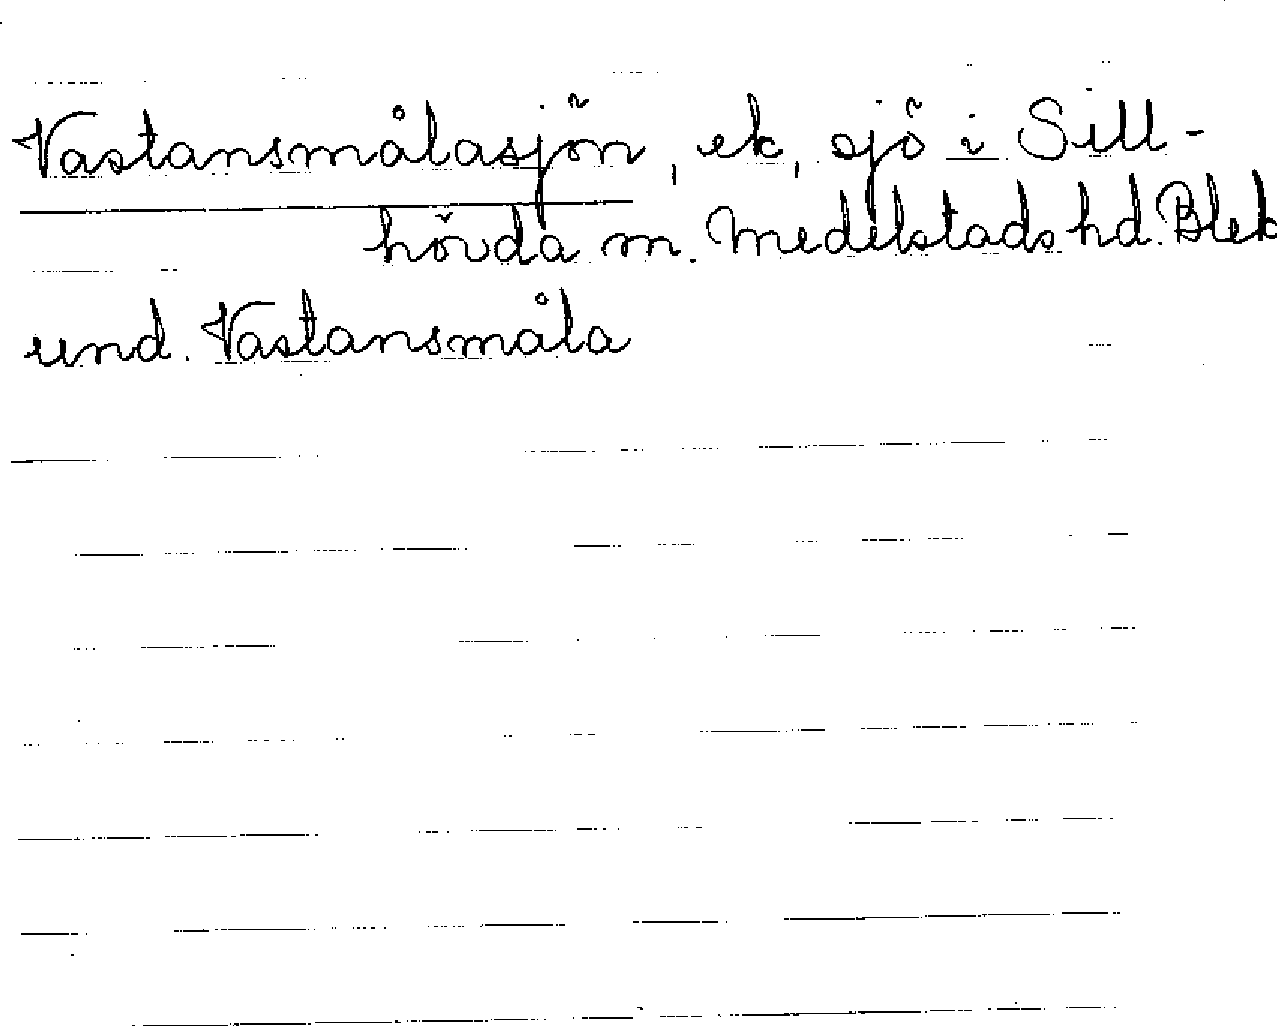 Vastansmålasjön, ek, sjö i Sill-
hövda sn. Medelstads hd. Blek
und. Vastansmåla